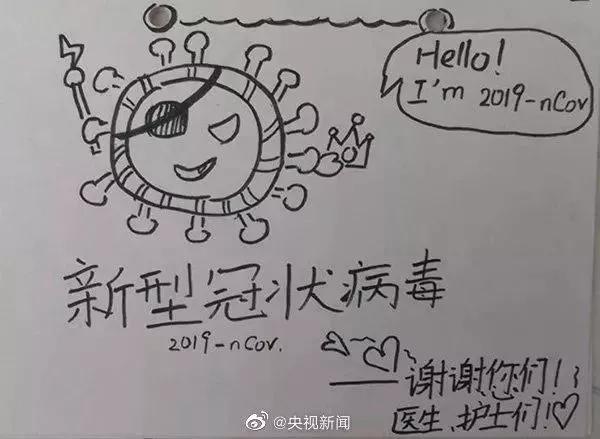 Hello!
I'm 2019-nCov
新型冠状病毒
2019-nCov.
谢谢你们!
医生、护士们!
@央视新闻